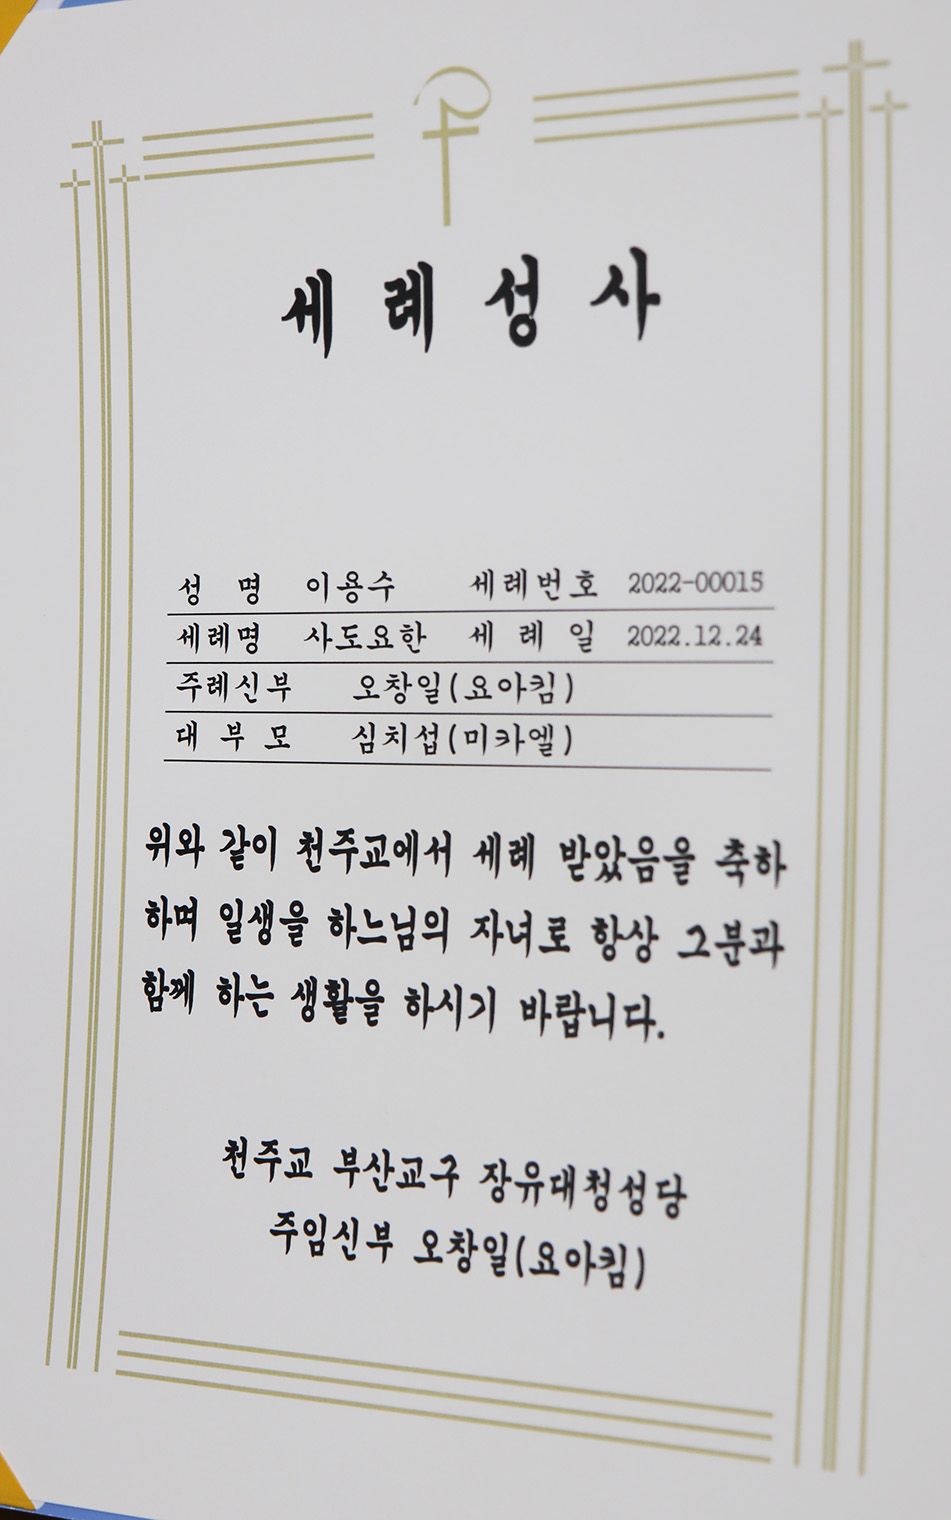 세례성사
성 명 이용수 세례번호 2022-00015
세례명 사도요한 세 례 일 2022.12.24
주례신부 오창일(요아킴)
대 부 모 심치섭(미카엘)
위와 같이 천주교에서 세례 받았음을 축하
하며 일생을 하느님의 자녀로 항상 그분과
함께 하는 생활을 하시기 바랍니다.
천주교 부산교구 장유대청성당
주임신부 오창일(요아킴)